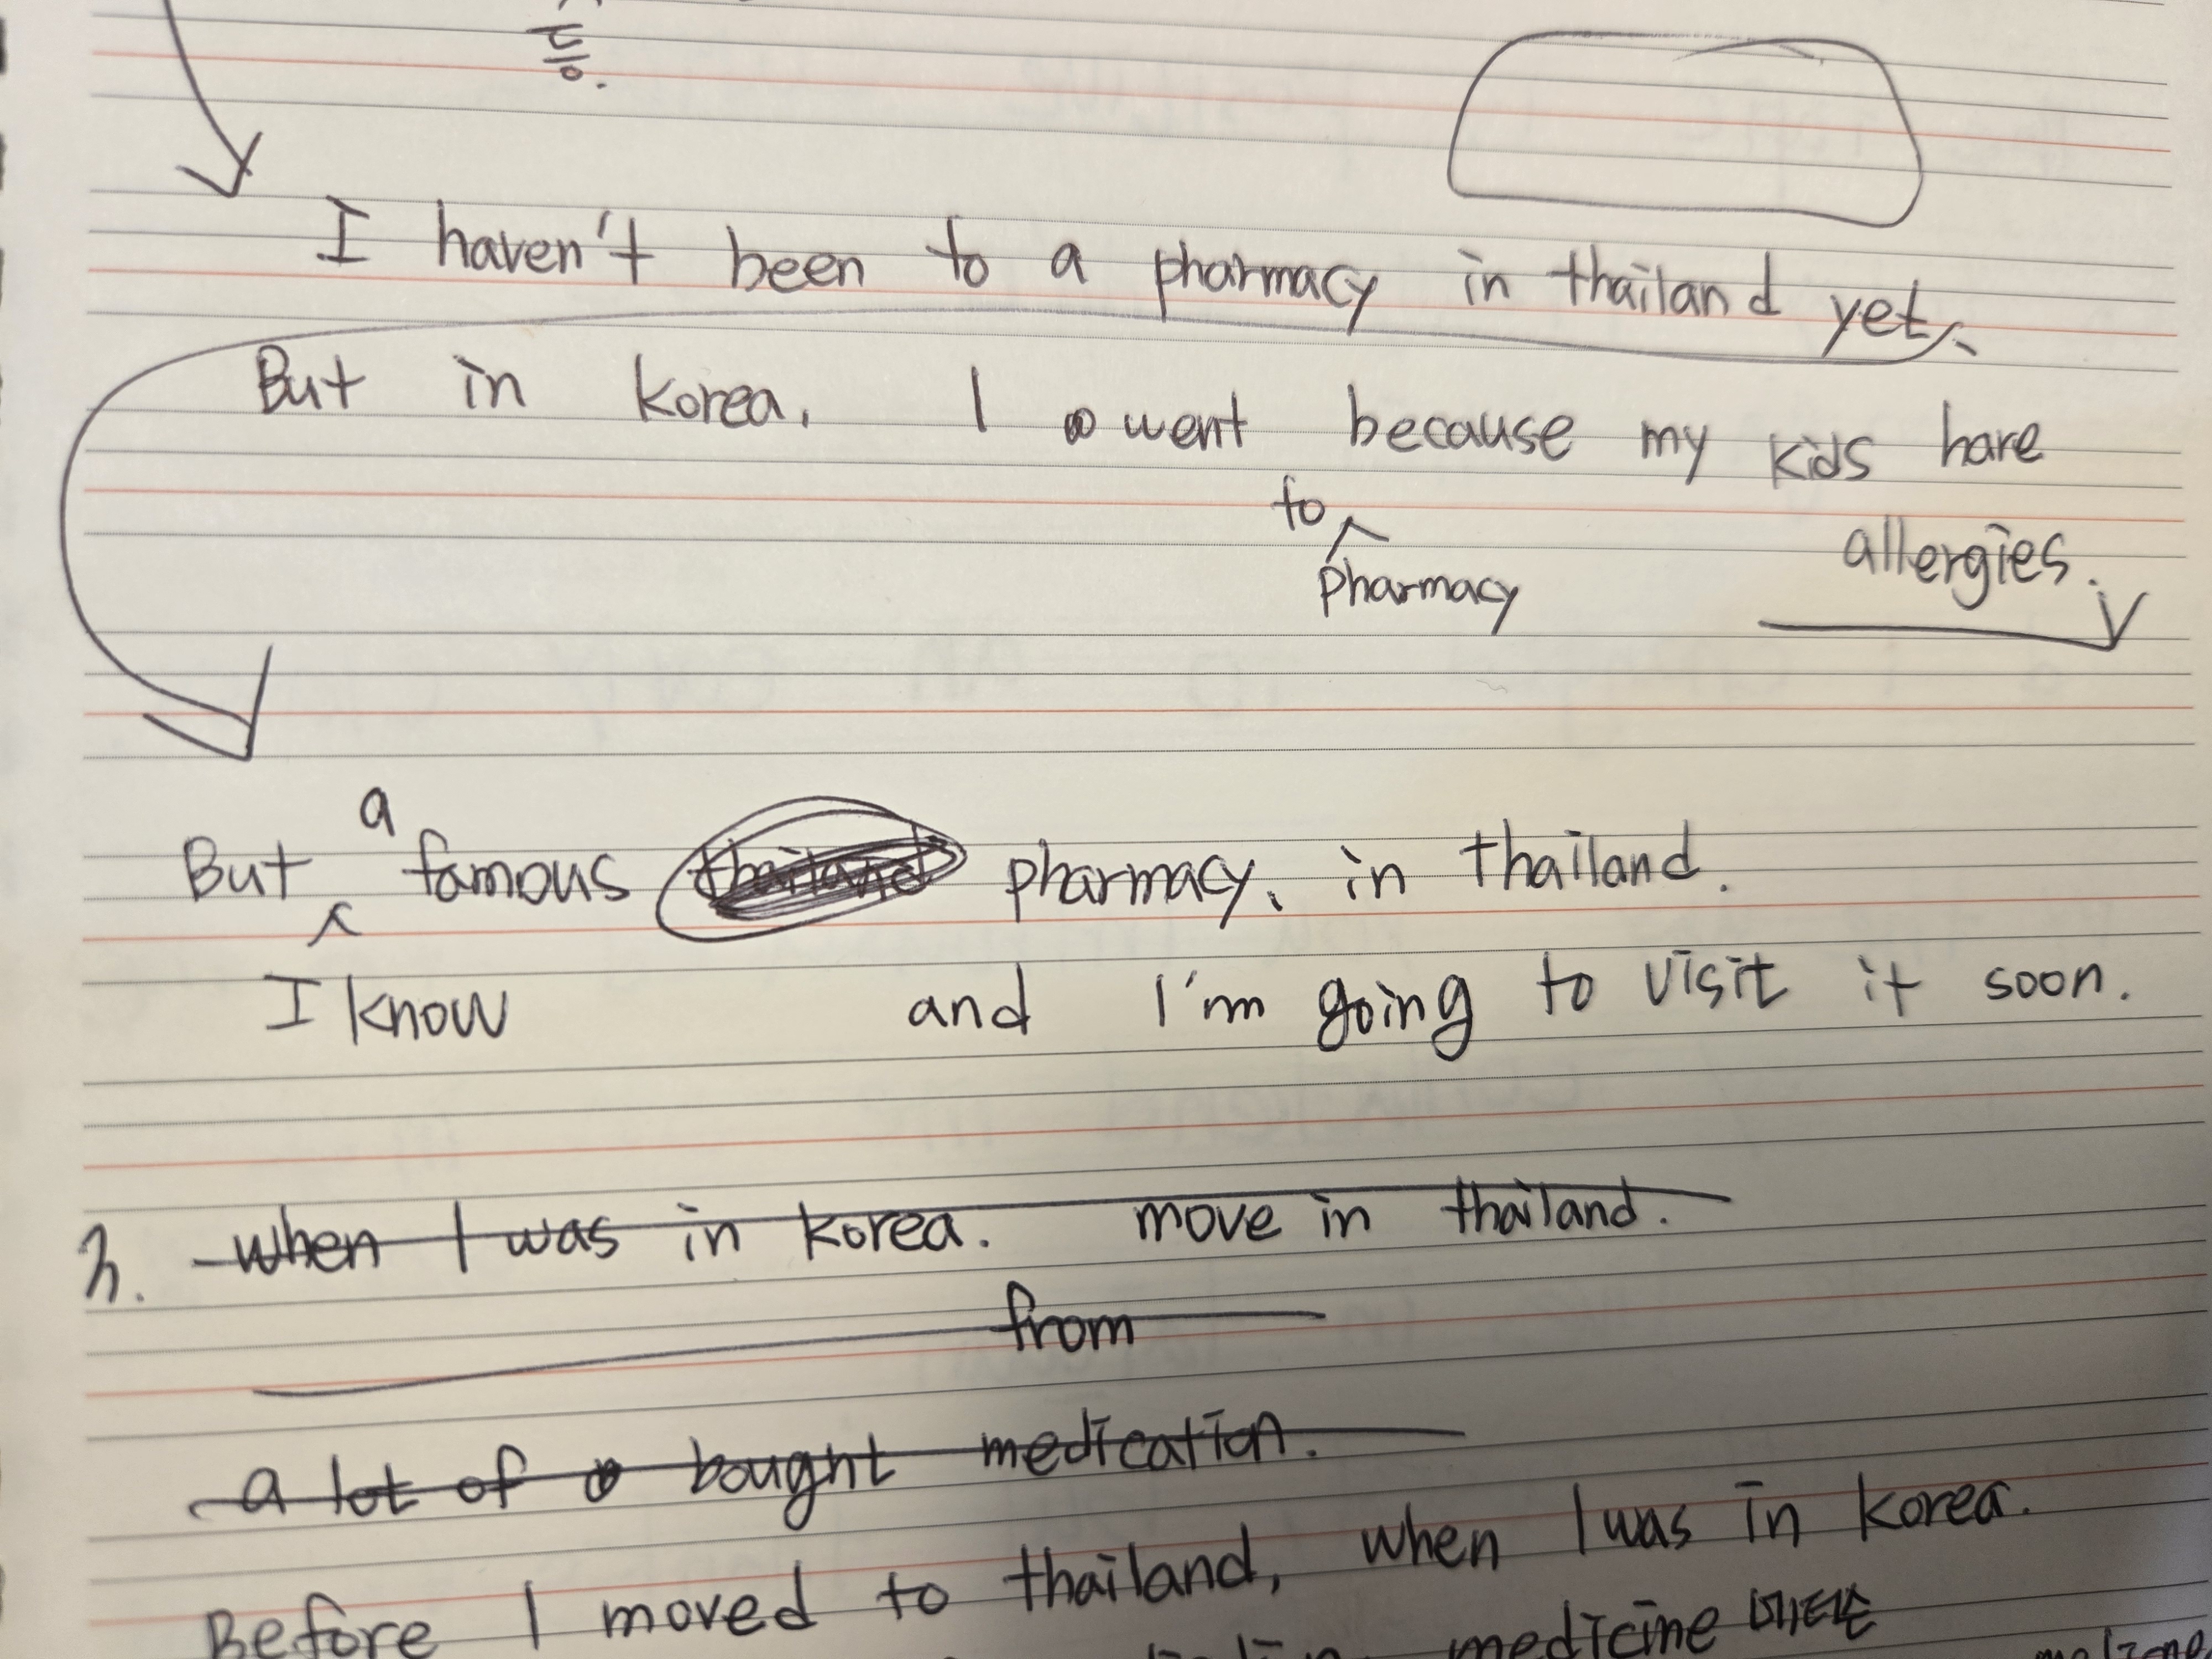 I haven't been to a pharmacy in thailand yet
But in korea, I went because my kids have
to pharmacy
allergies.
a
But famous thailand pharmacy, in thailand.
I know and I'm going to visit it soon.
3. when I was in korea. move in thailand.
from
a lot of bought medication.
Before I moved to thailand, when I was in korea.
medicine